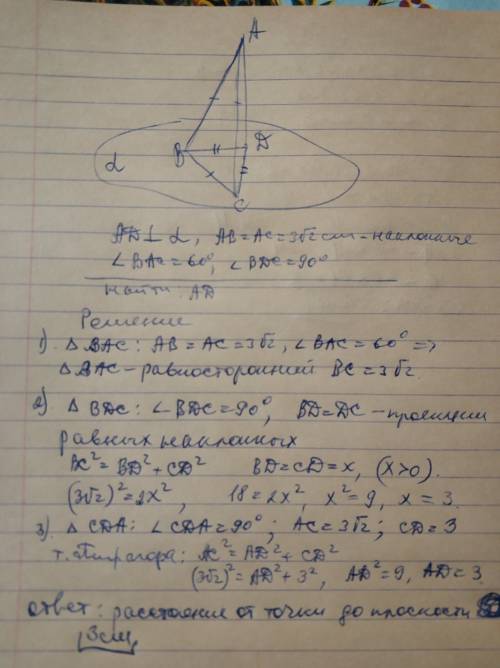 A
B
D
α
C
AD ⊥ α, AB = AC = 3√2 см - наклонные
∠BAC = 60°, ∠BDC = 90°
Найти AD
Решение
1) △ BAC: AB = AC = 3√2, ∠BAC = 60° =>
△ BAC - равносторонний BC = 3√2.
2) △ BDC: ∠BDC = 90°, BD = DC - проекции
равных наклонных
BC² = BD² + CD² BD = CD = x, (x>0).
(3√2)² = 2x², 18 = 2x², x² = 9, x = 3.
3) △ CDA: ∠CDA = 90°; AC = 3√2; CD = 3
т. Пифагора: AC² = AD² + CD²
(3√2)² = AD² + 3², AD² = 9, AD = 3.
Ответ: расстояние от точки до плоскости
3см